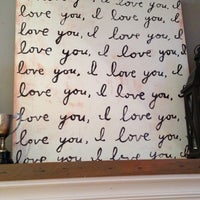 I love you, I
love you, I love
love you, I love
love you, I love you, I
love you, I love you, I
love you, I love you,
love you, I love you,
love you, I love you,
I love you, I love you